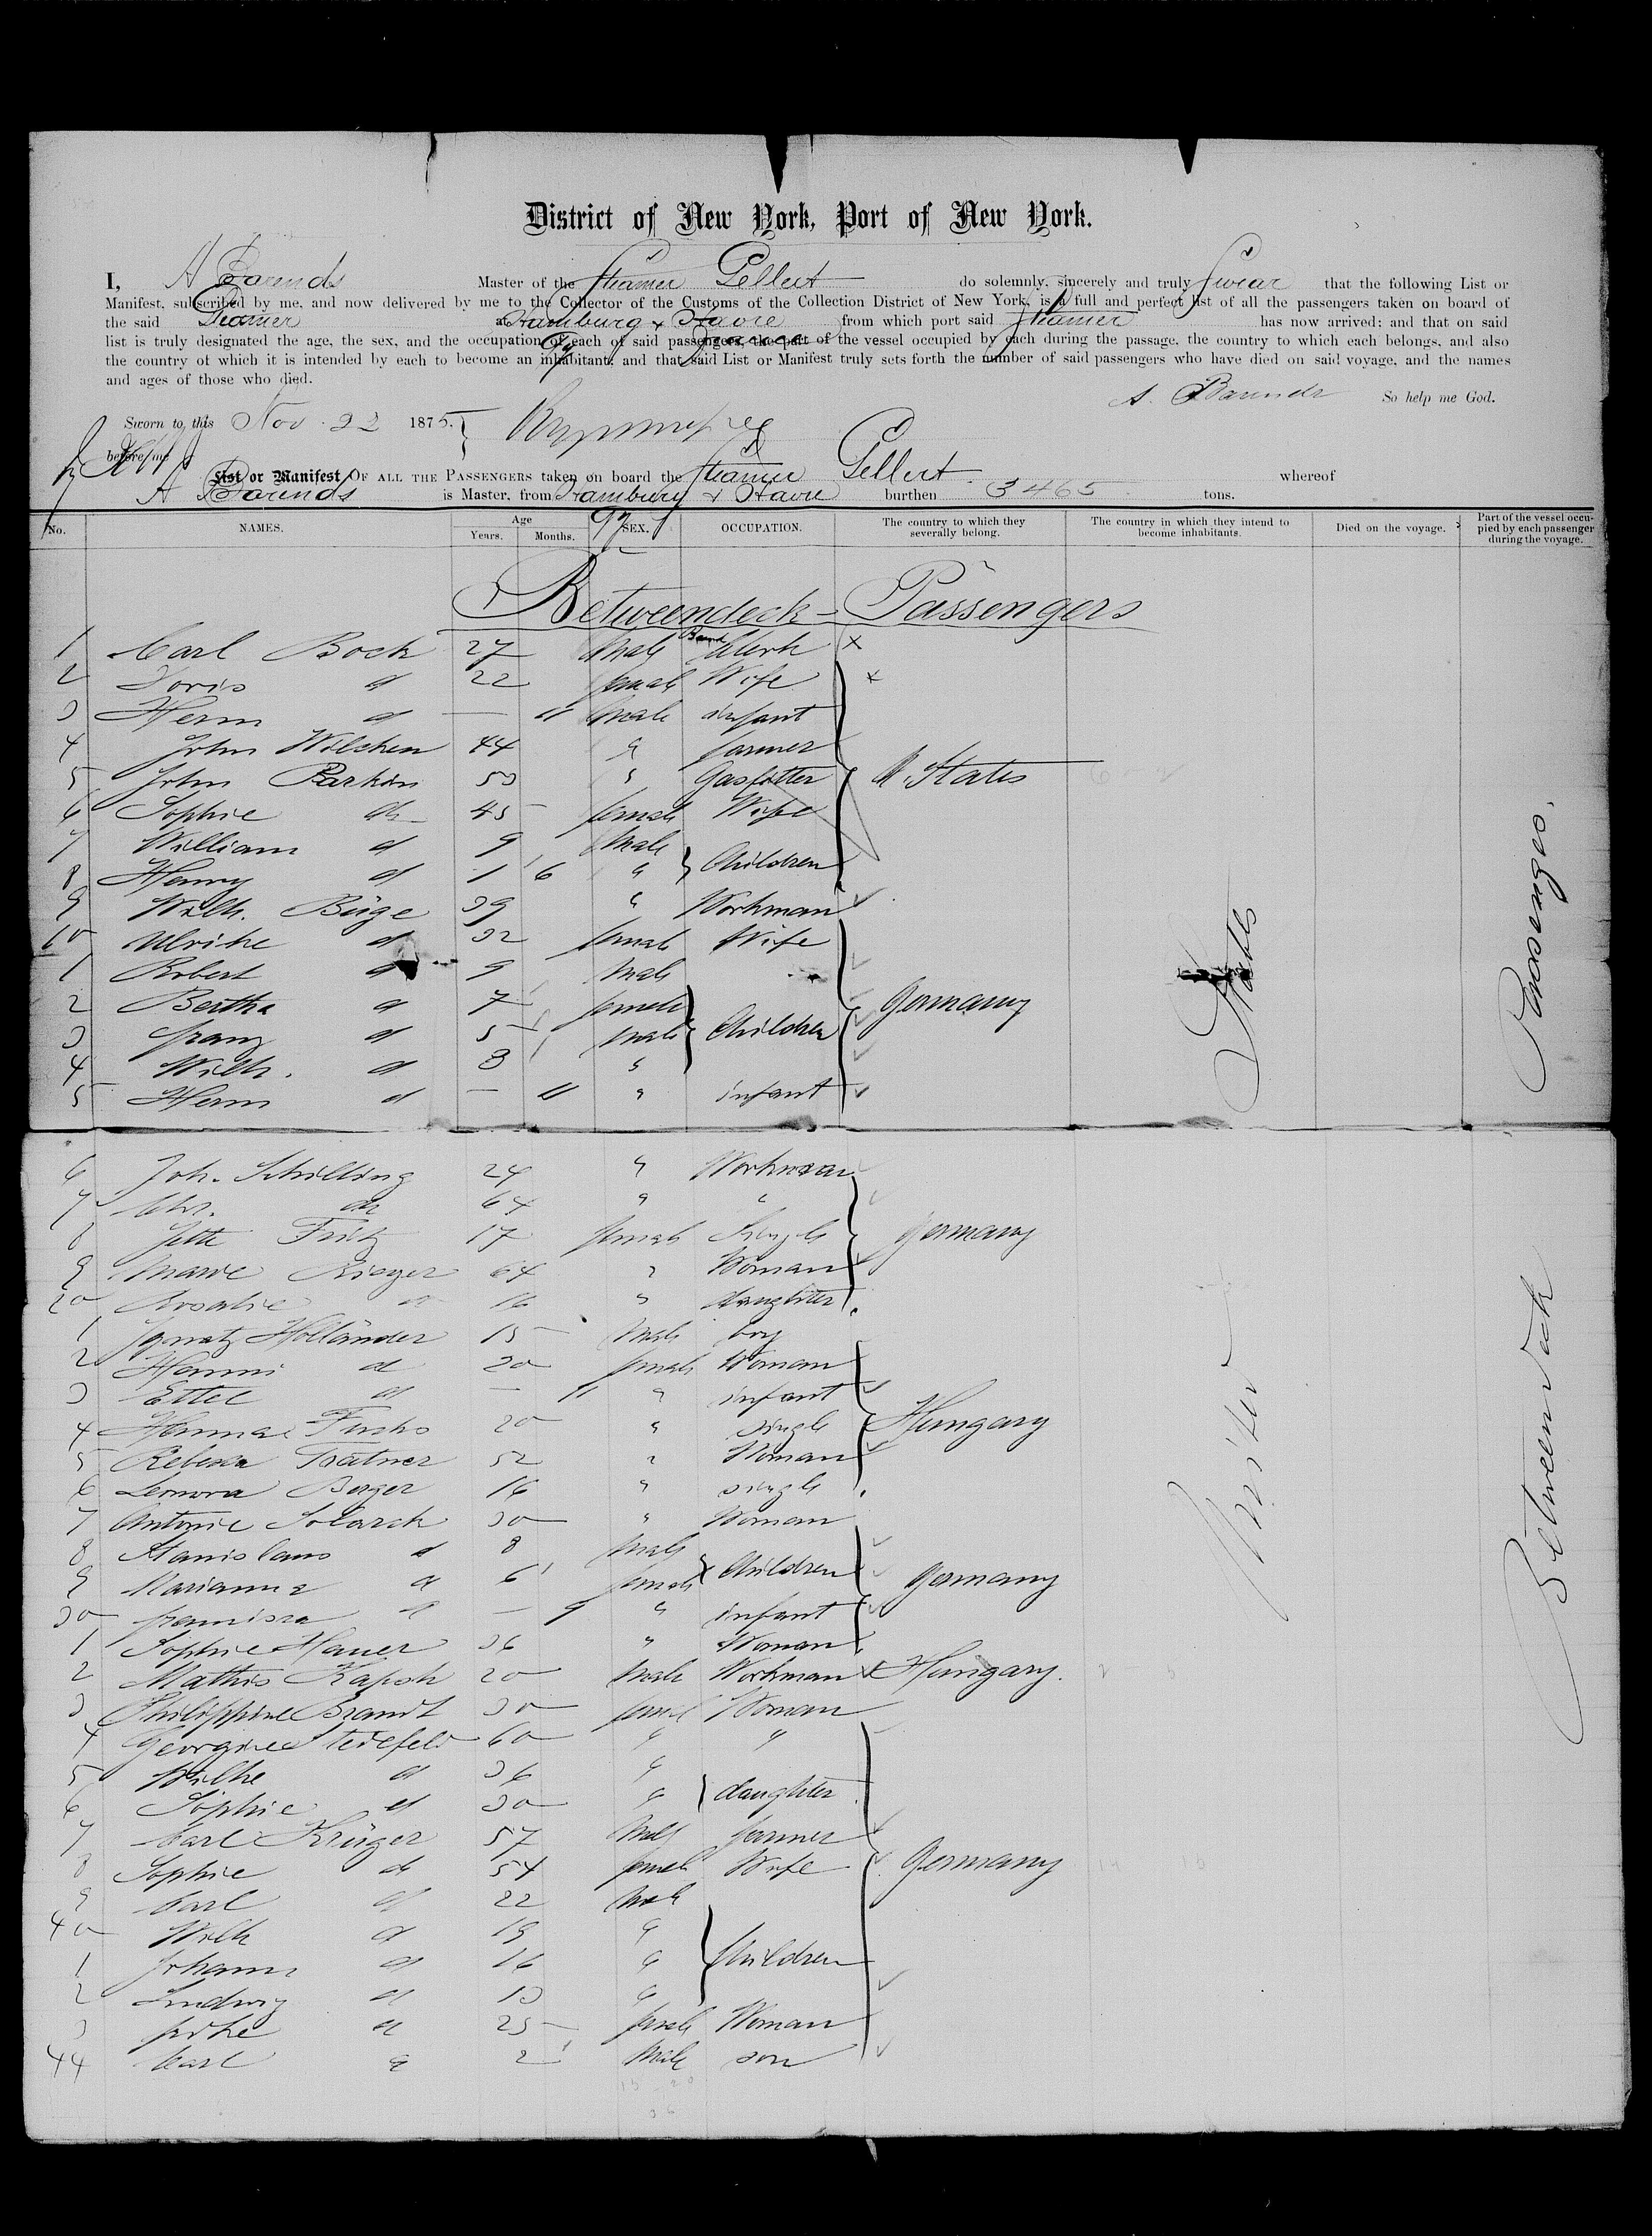 District of New York, Port of New York.
I, A Barends Master of the Steamer Gellert do solemnly, sincerely and truly Swear that the following List or
Manifest, subscribed by me, and now delivered by me to the Collector of the Customs of the Collection District of New York, is a full and perfect list of all the passengers taken on board of
the said Steamer at Hamburg & Havre from which port said Steamer has now arrived: and that on said
list is truly designated the age, the sex, and the occupation of each of said passengers, the part of the vessel occupied by each during the passage, the country to which each belongs, and also
the country of which it is intended by each to become an inhabitant, and that said List or Manifest truly sets forth the number of said passengers who have died on said voyage, and the names
and ages of those who died.
A. Barends So help me God.
Sworn to this Nov. 22 1875.
before me
List or Manifest OF ALL THE PASSENGERS taken on board the Steamer Gellert whereof
A Barends is Master, from Hamburg & Havre burthen 3465 tons.
No. NAMES. Age Years. Months. SEX. OCCUPATION. The country to which they severally belong. The country in which they intend to become inhabitants. Died on the voyage. Part of the vessel occupied by each passenger during the voyage.
Betweendeck-Passengers
1 Carl Bock 27 Male Clerk
2 Doris d 22 female Wife
3 Herm d — 11 Male infant
4 John Wilchen 44 " farmer
5 John Parkin 50 " Gasfitter U. States
6 Sophie do 45 female Wife
7 William d 9 Male
8 Henry d 1 6 " Children
9 Wilh. Büge 39 " Workman
10 Ulrike d 32 female Wife
1 Robert d 9 Male
2 Bertha d 7 female Germany
3 Franz d 5 male Children
4 Wilh. d 3 "
5 Herm d — 11 " infant
6 Joh. Schilling 24 " Workman
7 Chr. do 64 " "
8 Jette Fritz 17 female Single Germany
9 Marie Rieger 64 " Woman
20 Rosalie d 16 " daughter
1 Ignatz Holländer 15 Male boy
2 Hanni d 20 female Woman
3 Ettel d — 11 " infant
4 Hanna Fuchs 20 " single Hungary
5 Rebecca 52 " Woman
6 Leonora Berger 16 " single
7 Antonie Solarek 30 " Woman
8 Stanislaus d 8 Male
9 Marianna d 6 female Children Germany
30 d — 9 " infant
1 Sophie Hauer 36 " Woman
2 Mathis Kapsh 20 Male Workman Hungary.
3 Philippine Brandt 30 female Woman
4 Georgine Stedefeld 60 " "
5 Wilhe d 36 "
6 Sophie d 30 " daughter
7 Carl Krüger 57 Male farmer
8 Sophie do 54 female Wife Germany
9 Carl d 22 Male
40 Wilh d 19 "
1 Johann d 16 " Children
2 Ludwig d 13 "
3 d 25 female Woman
44 Carl d 2 Male son
States
Between deck Passenger.